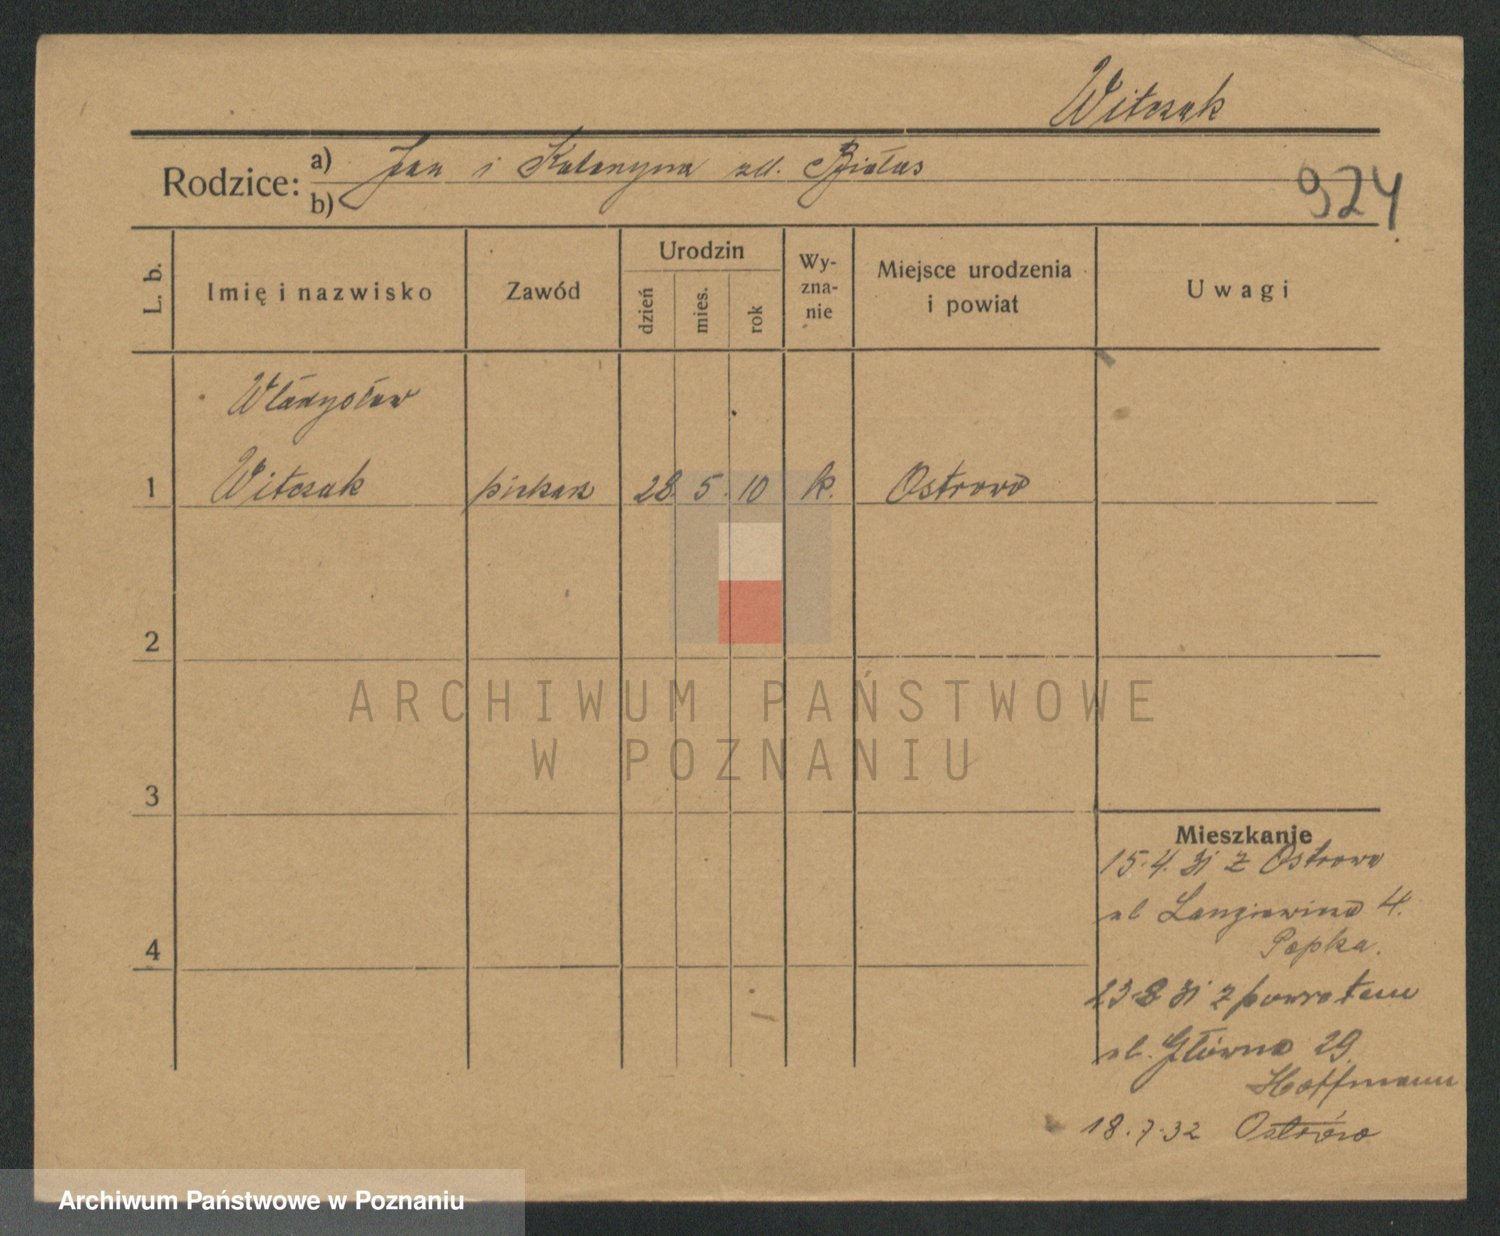 Witczak
Rodzice:
a) Jan i Katarzyna zd. Białas
b)
924
L. b.
Imię i nazwisko
Zawód
Urodzin
dzień
mies.
rok
Wy-
zna-
nie
Miejsce urodzenia
i powiat
Uwagi
Władysław
1 Witczak piekarz 28. 5. 10 k. Ostrowo
2
3
4
ARCHIWUM PAŃSTWOWE
W POZNANIU
Mieszkanie
15.4.31 z Ostrowa
ul 4.
Pepka.
23-8 31 z powrotem
ul. Główna 29.
Hoffmann
18.7.32 Ostrów
Archiwum Państwowe w Poznaniu